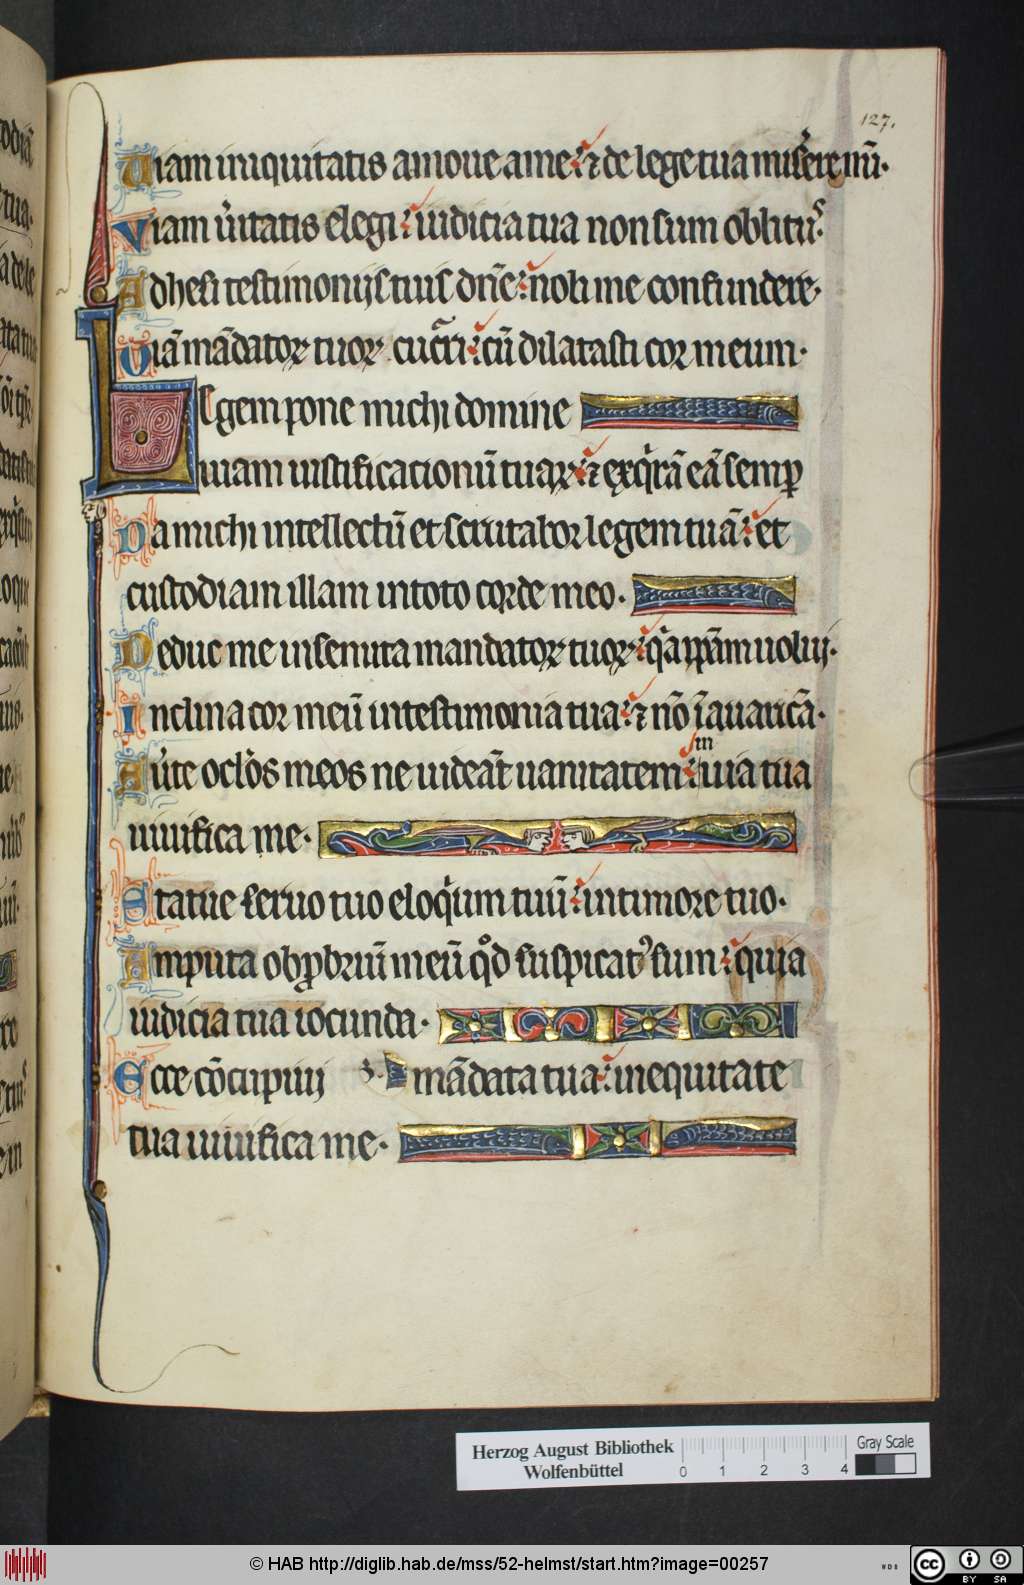 127.
Uiam iniquitatis amoue a me. ⁊ de lege tua miſ̉ere mei̅.
Viam u̓itatis elegi. iudicia tua non sum oblituſ.
Adhesi testimonijs tuis dn̅e. noli me confundere.
Uia̅ ma̅datoꝝ tuoꝝ cuc̓ri. cu̅ dilatasti cor meum.
Legem pone michi domine
uiam iustificationu̅ tuaꝝ. ⁊ exq̓ra̅ ea̅ semꝑ
Da michi intellectu̅ et scrutabor legem tua̅. et
custodiam illam in toto corde meo.
Deduc me in semita mandatoꝝ tuoꝝ. q̓a ip̅am uolui.
Inclina cor meu̅ in testimonia tua. ⁊ no̅ i̅ auaricia̅.
Au̓te oc̓los meos ne uidea̅t uanitatem. in uia tua
uiuifica me.
Statue seruo tuo eloq̓um tuu̅. in timore tuo.
Amputa obꝓbriu̅ meu̅ qd̓ suspicatꝰ sum. quia
iudicia tua iocunda.
Ecce co̅cupiui ma̅data tua. in equitate
tua uiuifica me.
Herzog August Bibliothek
Wolfenbüttel
0 1 2 3 4
Gray Scale
© HAB http://diglib.hab.de/mss/52-helmst/start.htm?image=00257
WDB
cc BY SA